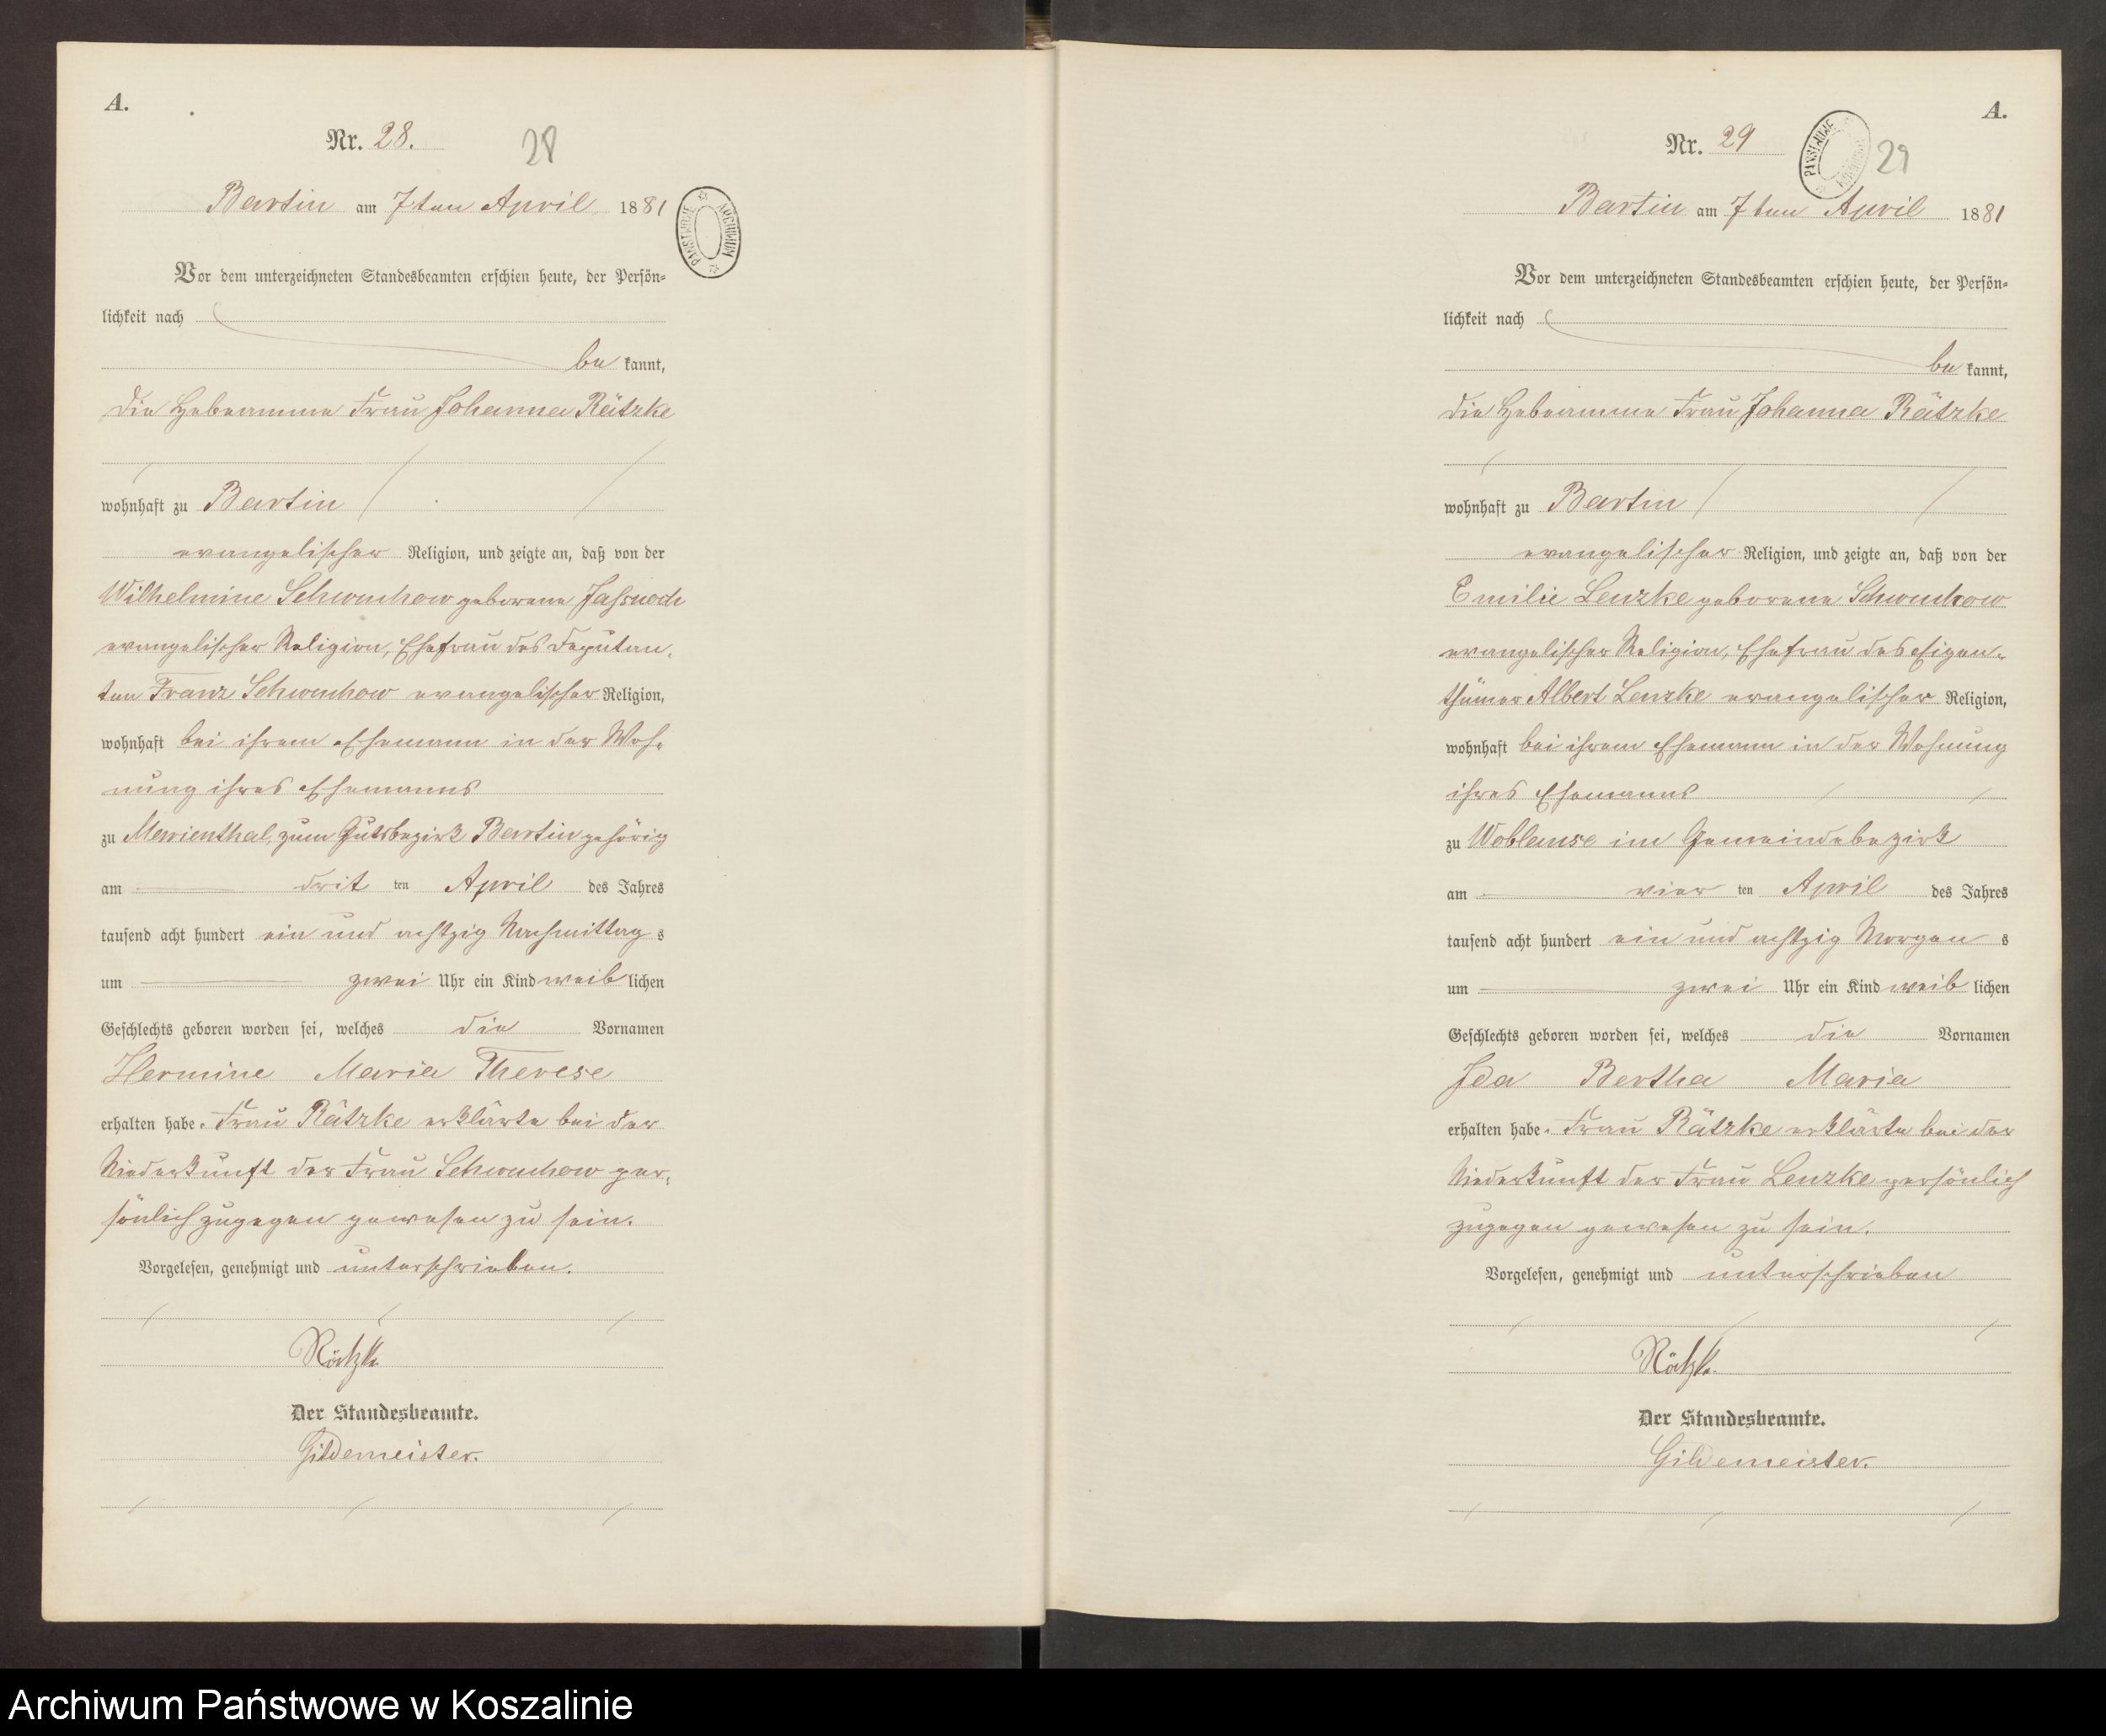 A.
Nr. 28.
28
Bartin am 7ten April 1881
PAŃSTWOWE ARCHIWUM
Vor dem unterzeichneten Standesbeamten erschien heute, der Persön-
lichkeit nach
be kannt,
die Hebeamme Frau Johanna Rätzke
wohnhaft zu Bartin
evangelischer Religion, und zeigte an, daß von der
Wilhelmine Schwuchow geborene
evangelischer Religion, Ehefrau des Deputan-
ten Franz Schwuchow evangelischer Religion,
wohnhaft bei ihrem Ehemann in der Woh-
nung ihres Ehemanns
zu Marienthal, zum Gutsbezirk Bartin gehörig
am drit ten April des Jahres
tausend acht hundert ein und achtzig Nachmittag s
um zwei Uhr ein Kind weib lichen
Geschlechts geboren worden sei, welches die Vornamen
Hermine Maria Therese
erhalten habe. Frau Rätzke erklärte bei der
Niederkunft der Frau Schwuchow per-
sönlich zugegen gewesen zu sein.
Vorgelesen, genehmigt und unterschrieben.
Rätzke
Der Standesbeamte.
Gildemeister.
A.
Nr. 29
PAŃSTWOWE
29
Bartin am 7ten April 1881
Vor dem unterzeichneten Standesbeamten erschien heute, der Persön-
lichkeit nach
be kannt,
die Hebeamme Frau Johanna Rätzke
wohnhaft zu Bartin
evangelischer Religion, und zeigte an, daß von der
Emilie Lenzke geborene Schwuchow
evangelischer Religion, Ehefrau des Eigen-
thümer Albert Lenzke evangelischer Religion,
wohnhaft bei ihrem Ehemann in der Wohnung
ihres Ehemanns
zu Woblanse im Gemeindebezirk
am vier ten April des Jahres
tausend acht hundert ein und achtzig Morgen s
um zwei Uhr ein Kind weib lichen
Geschlechts geboren worden sei, welches die Vornamen
Ida Bertha Maria
erhalten habe. Frau Rätzke erklärte bei der
Niederkunft der Frau Lenzke persönlich
zugegen gewesen zu sein.
Vorgelesen, genehmigt und unterschrieben
Rätzke.
Der Standesbeamte.
Gildemeister.
Archiwum Państwowe w Koszalinie